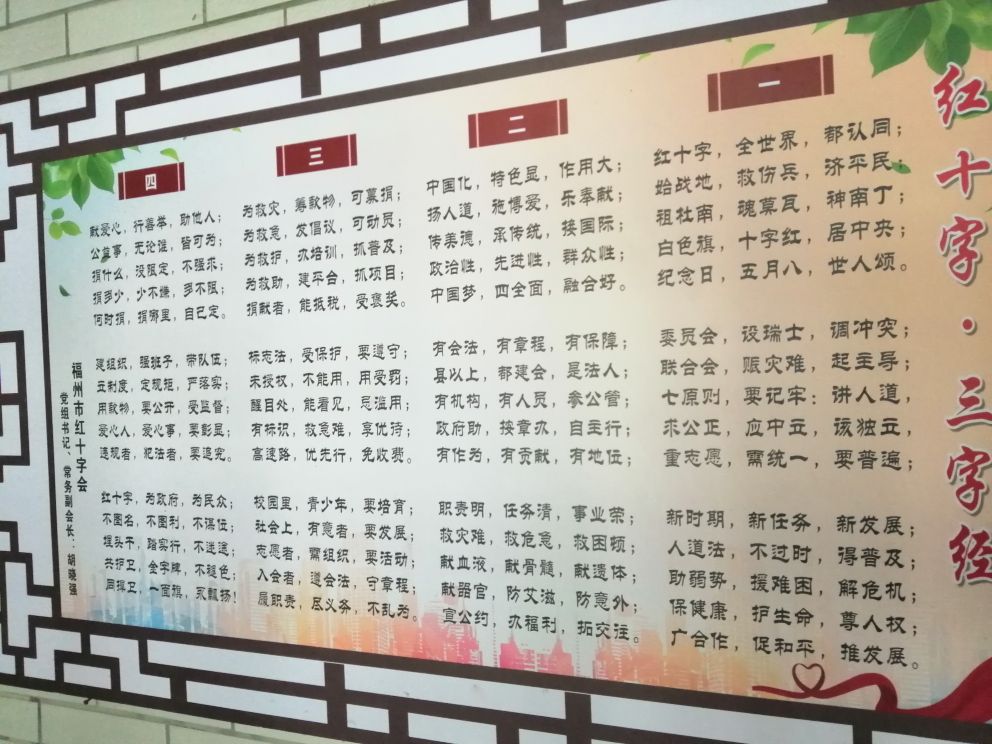 红十字·三字经
一
红十字，全世界，都认同；
始战地，救伤兵，济平民；
祖杜南，瑰莫瓦，神南丁；
白色旗，十字红，居中央；
纪念日，五月八，世人颂。
委员会，设瑞士，调冲突；
联合会，赈灾难，起主导；
七原则，要记牢：讲人道，
求公正，应中立，该独立，
重志愿，需统一，要普遍；
新时期，新任务，新发展；
人道法，不过时，得普及；
助弱势，援难困，解危机；
保健康，护生命，尊人权；
广合作，促和平，推发展。
二
中国化，特色显，作用大；
扬人道，施博爱，乐奉献；
传美德，承传统，接国际；
政治性，先进性，群众性；
中国梦，四全面，融合好。
有会法，有章程，有保障；
县以上，都建会，是法人；
有机构，有人员，参公管；
政府助，按章办，自主行；
有作为，有贡献，有地位；
职责明，任务清，事业荣；
救灾难，救危急，救困顿；
献血液，献骨髓，献遗体；
献器官，防艾滋，防意外；
宣公约，办福利，拓交往。
三
为救灾，筹款物，可募捐；
为救急，发倡议，可动员；
为救护，办培训，抓普及；
为救助，建平台，抓项目；
捐献者，能抵税，受褒奖。
标志法，受保护，要遵守；
未授权，不能用，用受罚；
醒目处，能看见，忌滥用；
有标识，救急难，享优待；
高速路，优先行，免收费。
校园里，青少年，要培育；
社会上，有意者，要发展；
志愿者，需组织，要活动；
入会者，遵会法，守章程；
履职责，尽义务，不乱为。
四
献爱心，行善举，助他人；
公益事，无论谁，皆可为；
捐什么，没限定，不强求；
捐多少，少不嫌，多不限；
何时捐，捐哪里，自己定。
建组织，强班子，带队伍；
立制度，定规矩，严落实；
用款物，要公开，受监督；
爱心人，爱心事，要彰显；
违规者，犯法者，要追究。
红十字，为政府，为民众；
不图名，不图利，不谋位；
埋头干，踏实行，不迷途；
共护卫，金字牌，不褪色；
同捍卫，一面旗，永飘扬！
福州市红十字会
党组书记、常务副会长：胡晓强